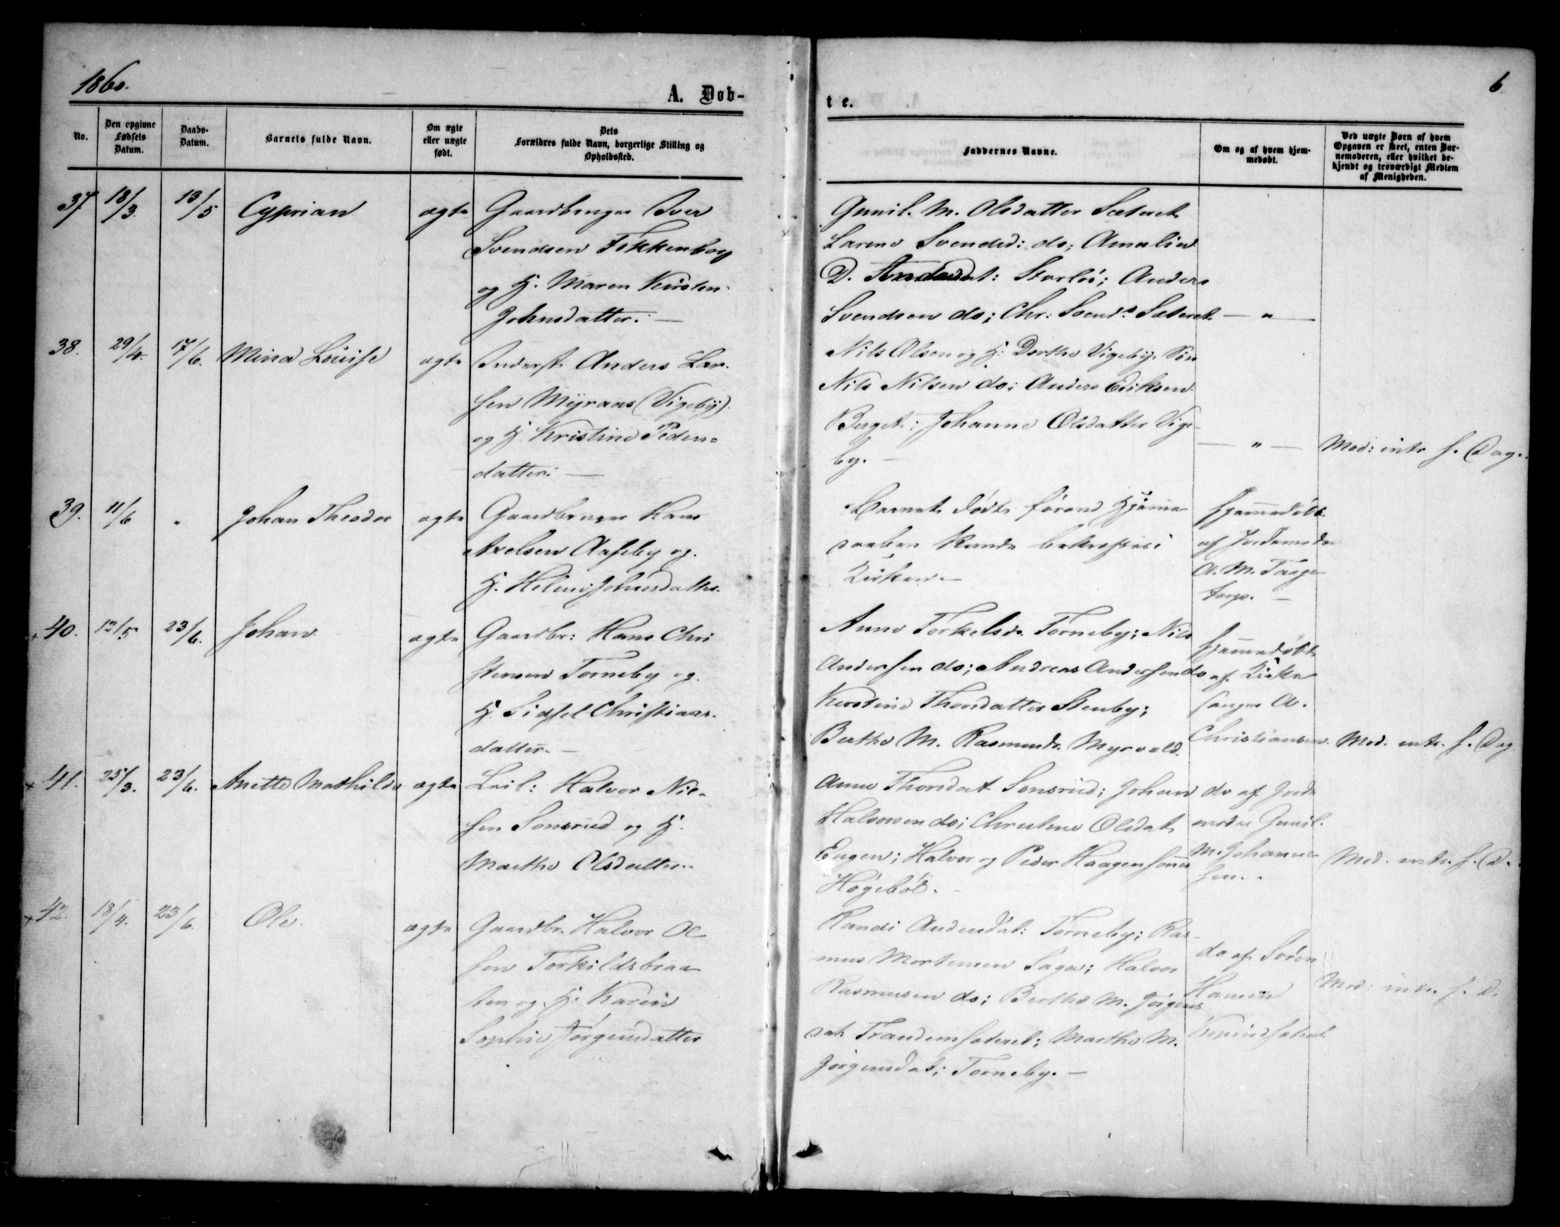 1860.
A. Døb-
te.
6
No.
Den opgivne Fødsels Datum.
Daabs-Datum.
Barnets fulde Navn.
Om ægte eller uægte født.
Dets Forældres fulde Navn, borgerlige Stilling og Opholdssted.
Faddernes Navne.
Om og af hvem hjemmedøbt.
Ved uægte Børn af hvem Opgaven er skeet, enten Barnemoderen, eller hvilket bekjendt og troværdigt Medlem af Menigheden.
37 18/3. 13/5 Cyprian ægte Gaardbruger Iver
Svendsen Fikkenboy
og H. Maren Kirsten
Johnsdatter. —
Gunil. M. Olsdatter Sæteret
Larine Svendsd: do; Amalia
D. Andersdat: Storlö; Anders
Svendsen do; Chr: Svends. Sæteret — " —
38. 29/4. 17/6. Mina Louise ægte Inderst Anders Lar-
sen Myraas (Vigeby).
og H. Kristine Peders=
datter: —
Nils Olsen og H: Dorthe Vigeby;
Nils Nilsen do; Anders Eriksen
Berget; Johanne Olsdatter Vige-
by. — — " — Mod: intr. s. Dag.
39. 11/6 " Johan Theodor ægte Gaardbruger Hans
Axelsen Aaseby og
H. Helene Johnsdatter.
Barnet døde førend Hjemme
daaben kunde bekræftes i
Kirken. —
Hjemmedöbt
af Jordemoder
A. M. Taage
torp. —
+ 40. 12/5 23/6. Johan ægte Gaardbr: Hans Chri
stensen Torneby og
H. Sidsel Christians-
datter. —
Anne Torkelsdr Torneby; Nils
Andersen do; Andreas Andersen do
Kirstine Thorsdatter Stenby;
Berthe M. Rasmusdr. Myrvold.
Hjemmedöbt
af Kirke
sanger A.
Christiansen Mod. intr. s. Dag
+ 41. 25/3. 23/6. Anette Mathilde ægte Leil: Halvor Niel-
sen Sonsrud og H.
Marthe Olsdatter.
Anne Thorsdat Sonsrud; Johan
Halvorsen do; Christine Olsdat.
Engen; Halvor og Peder Haagensønner
Högeböl. —
do af Jorde
moder Gunil.
M. Johanne
sen. Mod. intr. s. D.
+ 42. 13/4. 23/6. Ole. ægte Gaardbr. Halvor Ol
sen Torkildsbraa
ten og H. Karen
Sophie Jörgensdatter
Randi Andersdat: Torneby; Ras-
mus Mortensen Saga; Halvor
Rasmussen do; Berthe M. Jörgens
dat. Trandemsæteret; Marthe M.
Jörgensdat; Torneby. —
do af Sören
Hansen
Mod: intr. s. D.